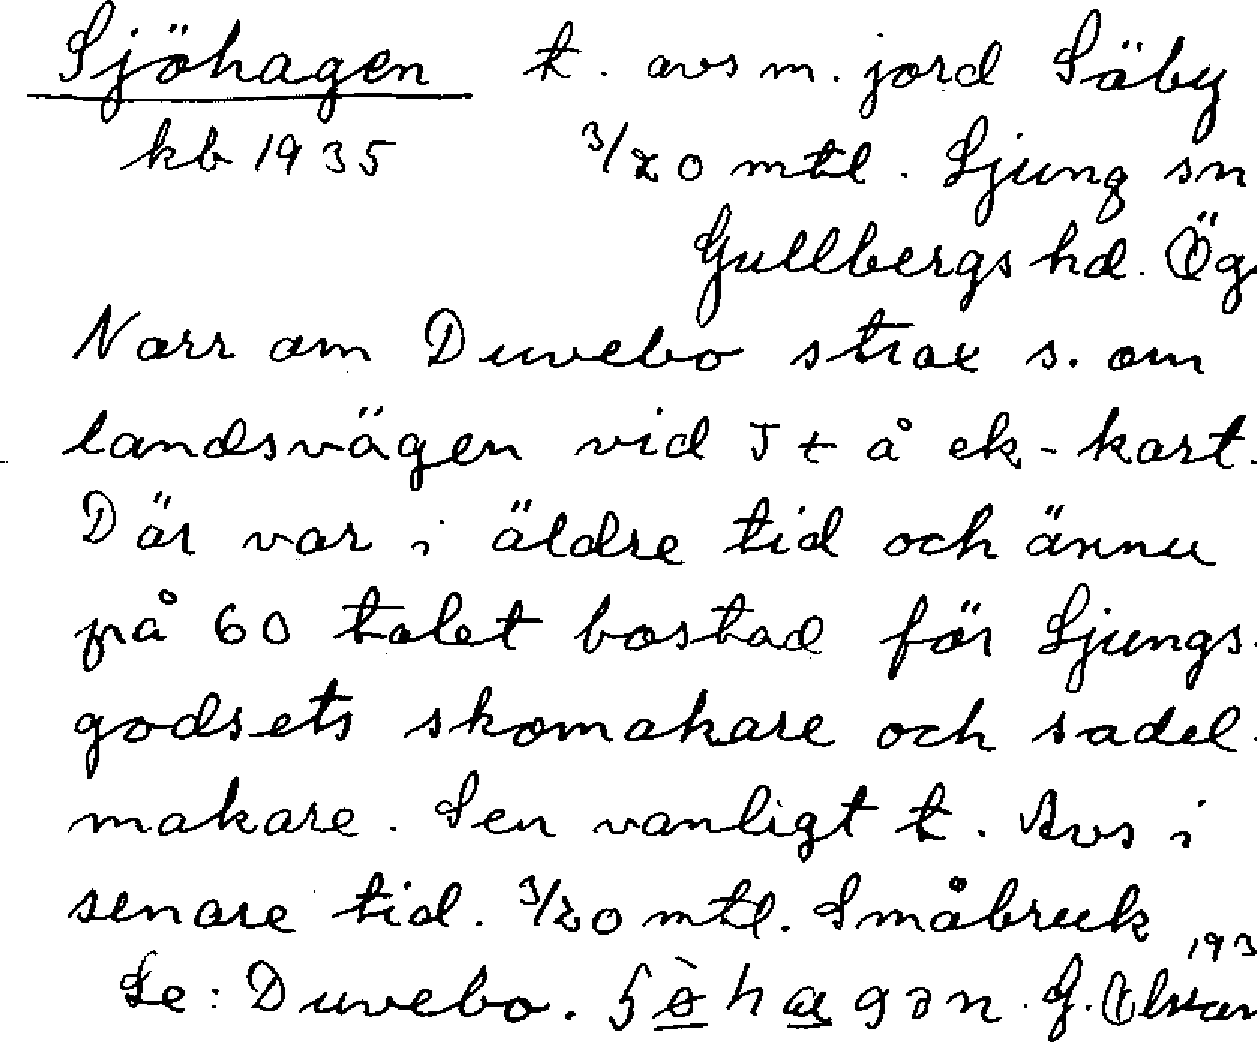 Sjöhagen t. avs m. jord Säby
kb 1935 3/20 mtl. Ljung sn
Gullbergs hd. Ög
Norr om Duvebo strax s. om
landsvägen vid J t å ek-kart.
Där var i äldre tid och ännu
på 60 talet bostad för Ljungs-
godsets skomakare och sadel-
makare. Sen vanligt t. Avs i
senare tid. 3/20 mtl. Småbruk
193
Se: Duvebo. G. Olsson